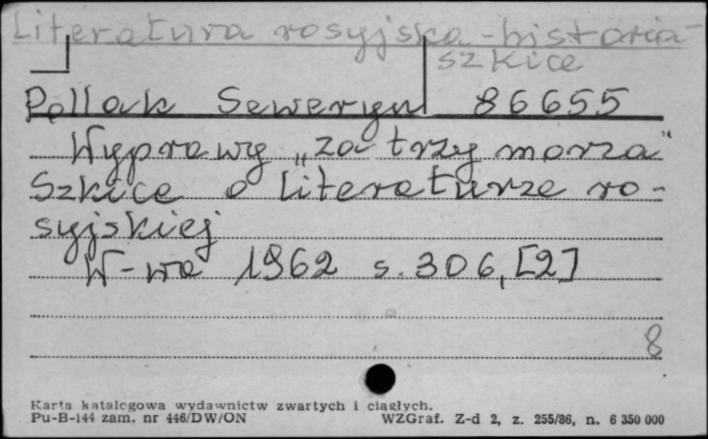 Literatura rosyjska - historia -
szkice
Pollak Seweryn 86655
Wyprawy „za trzy morza"
Szkice o literaturze ro-
syjskiej
W-wa 1962 s. 306, [2]
8
Karta katalogowa wydawnictw zwartych i ciągłych.
Pu-B-144 zam. nr 446/DW/ON WZGraf. Z-d 2, z. 255/86, n. 6 350 000